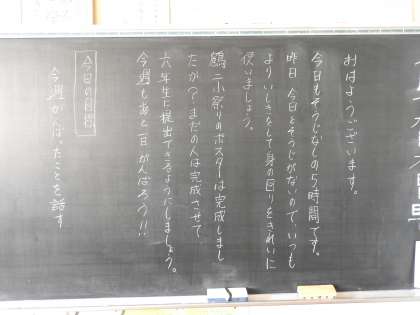 おはようございます。
今日もそうじなしの5時間です。
昨日、今日とそうじがないので、いつも
よりいしきをして身の回りをきれいに
使いましょう。
二小祭りのポスターは完成しまし
たか？まだの人は完成させて
六年生に提出できるようにしましょう。
今週もあと一日がんばろう!!
今日の目標
今週がんばったことを話す